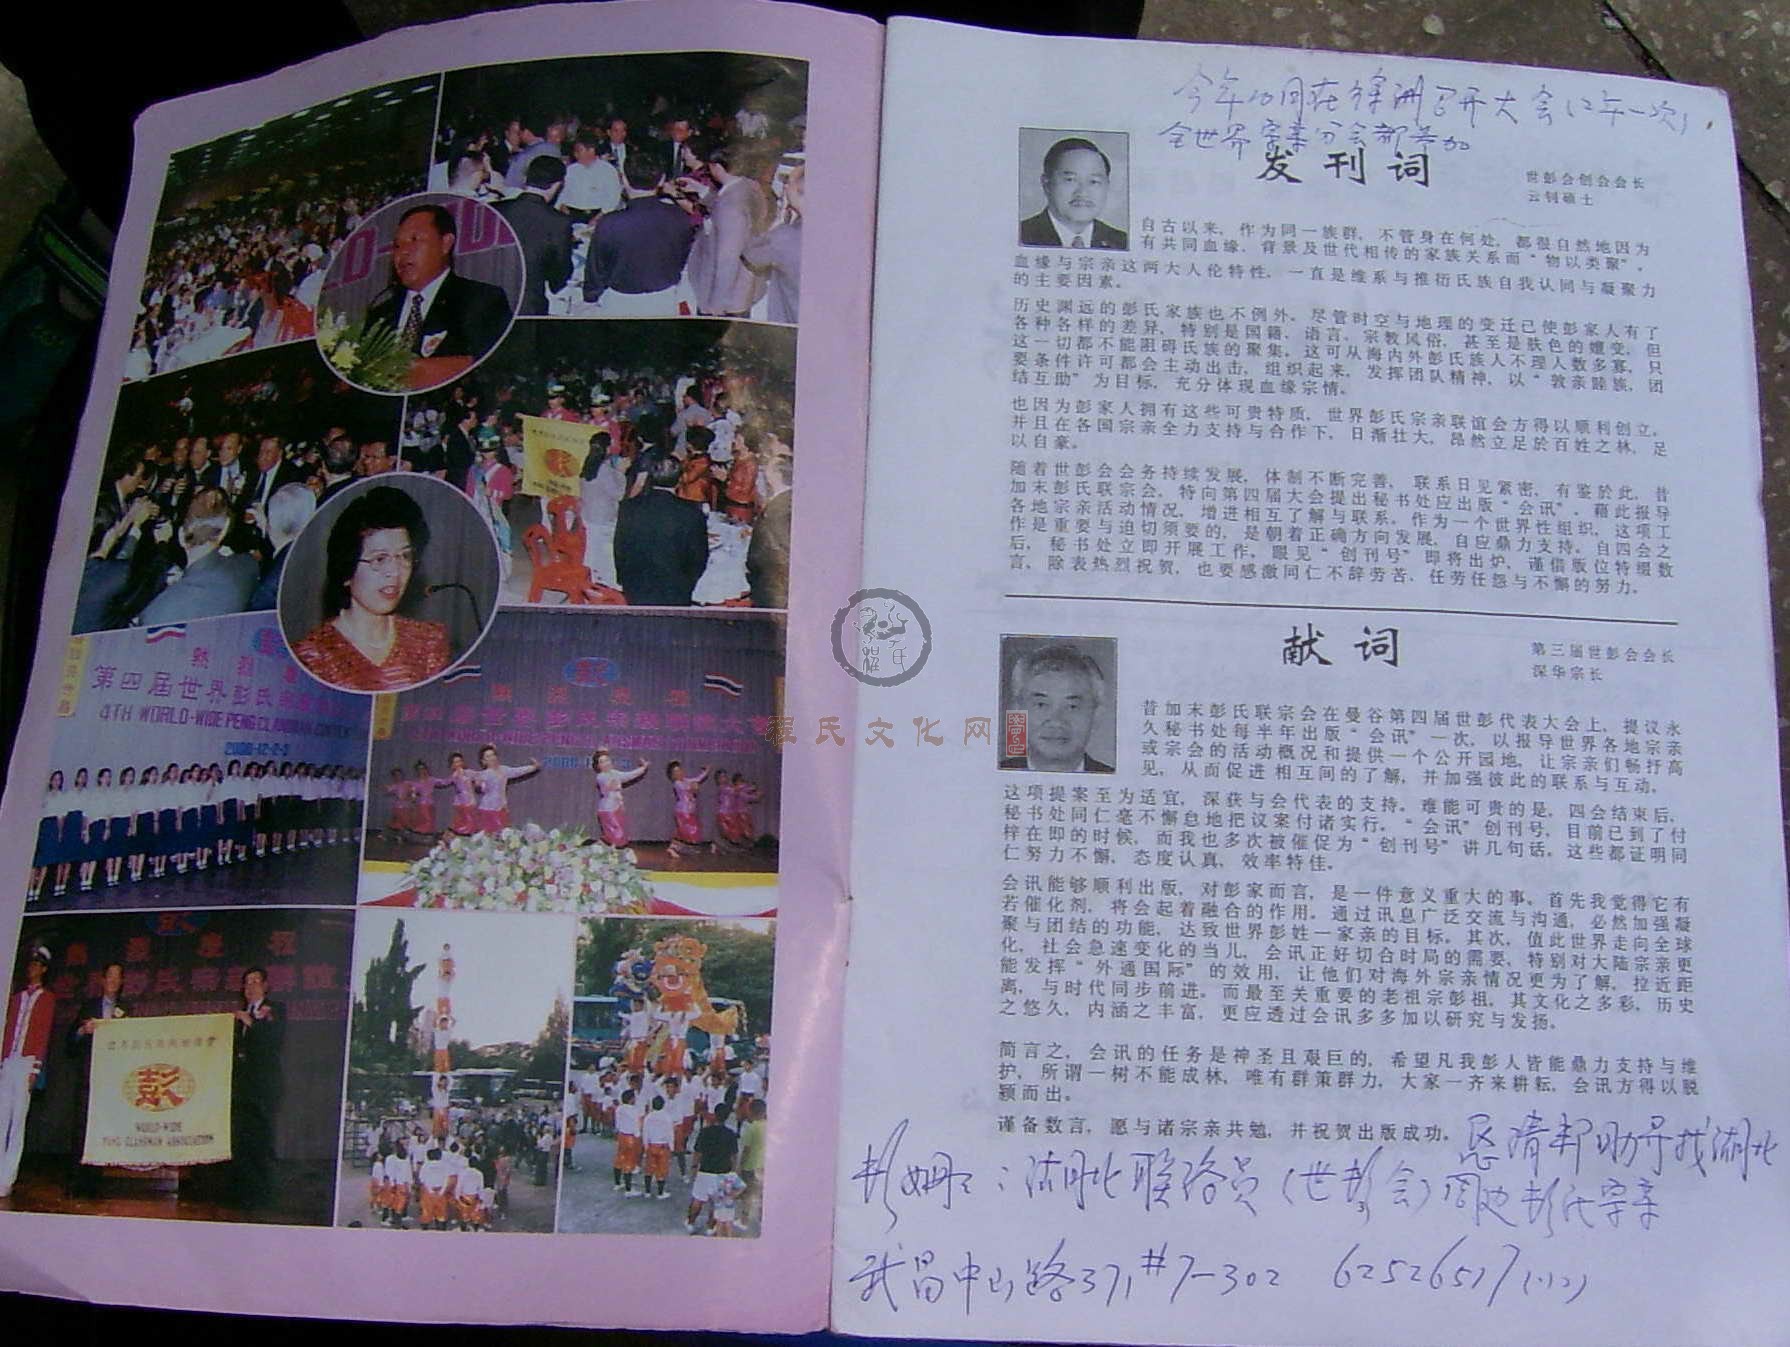 第四届世界彭氏
4TH WORLD-WIDE PENG CLANSMAN CONVEN
2008-12-2-3
彭
WORLD-WIDE
PENG CLANSMAN ASSOCIATION
程氏文化网
今年10月在徐洲召开大会(2年一次)
全世界宗亲分会都参加
发刊词
世彭会创会会长
云钊硕士
自古以来，作为同一族群，不管身在何处，都很自然地因为
有共同血缘，背景及世代相传的家族关系而“物以类聚”。
血缘与宗亲这两大人伦特性，一直是维系与推衍氏族自我认同与凝聚力
的主要因素。
历史渊远的彭氏家族也不例外。尽管时空与地理的变迁已使彭家人有了
各种各样的差异，特别是国籍、语言、宗教风俗，甚至是肤色的嬗变，但
这一切都不能阻碍氏族的聚集。这可从海内外彭氏族人不理人数多寡，只
要条件许可都会主动出击，组织起来，发挥团队精神，以“敦亲睦族，团
结互助”为目标，充分体现血缘宗情。
也因为彭家人拥有这些可贵特质，世界彭氏宗亲联谊会方得以顺利创立，
并且在各国宗亲全力支持与合作下，日渐壮大，昂然立足於百姓之林，足
以自豪。
随着世彭会会务持续发展，体制不断完善，联系日见紧密，有鉴於此，昔
加末彭氏联宗会，特向第四届大会提出秘书处应出版“会讯”，藉此报导
各地宗亲活动情况，增进相互了解与联系。作为一个世界性组织，这项工
作是重要与迫切须要的，是朝着正确方向发展，自应鼎力支持。自四会之
后，秘书处立即开展工作，眼见“创刊号”即将出炉，谨借版位特缀数
言，除表热烈祝贺，也要感激同仁不辞劳苦，任劳任怨与不懈的努力。
献词
第三届世彭会会长
深华宗长
昔加末彭氏联宗会在曼谷第四届世彭代表大会上，提议永
久秘书处每半年出版“会讯”一次，以报导世界各地宗亲
或宗会的活动概况和提供一个公开园地，让宗亲们畅抒高
见，从而促进相互间的了解，并加强彼此的联系与互动。
这项提案至为适宜，深获与会代表的支持。难能可贵的是，四会结束后，
秘书处同仁毫不懈怠地把议案付诸实行。“会讯”创刊号，目前已到了付
梓在即的时候，而我也多次被催促为“创刊号”讲几句话，这些都证明同
仁努力不懈，态度认真，效率特佳。
会讯能够顺利出版，对彭家而言，是一件意义重大的事。首先我觉得它有
若催化剂，将会起着融合的作用。通过讯息广泛交流与沟通，必然加强凝
聚与团结的功能，达致世界彭姓一家亲的目标。其次，值此世界走向全球
化，社会急速变化的当儿，会讯正好切合时局的需要，特别对大陆宗亲更
能发挥“外通国际”的效用，让他们对海外宗亲情况更为了解，拉近距
离，与时代同步前进。而最至关重要的老祖宗彭祖，其文化之多彩，历史
之悠久，内涵之丰富，更应透过会讯多多加以研究与发扬。
简言之，会讯的任务是神圣且艰巨的，希望凡我彭人皆能鼎力支持与维
护，所谓一树不能成林，唯有群策群力，大家一齐来耕耘，会讯方得以脱
颖而出。
谨备数言，愿与诸宗亲共勉，并祝贺出版成功。
恳请帮助寻找湖北
彭姆：湖北联络员(世彭会)周边彭氏宗亲
武昌中山路371#7-302 62526517